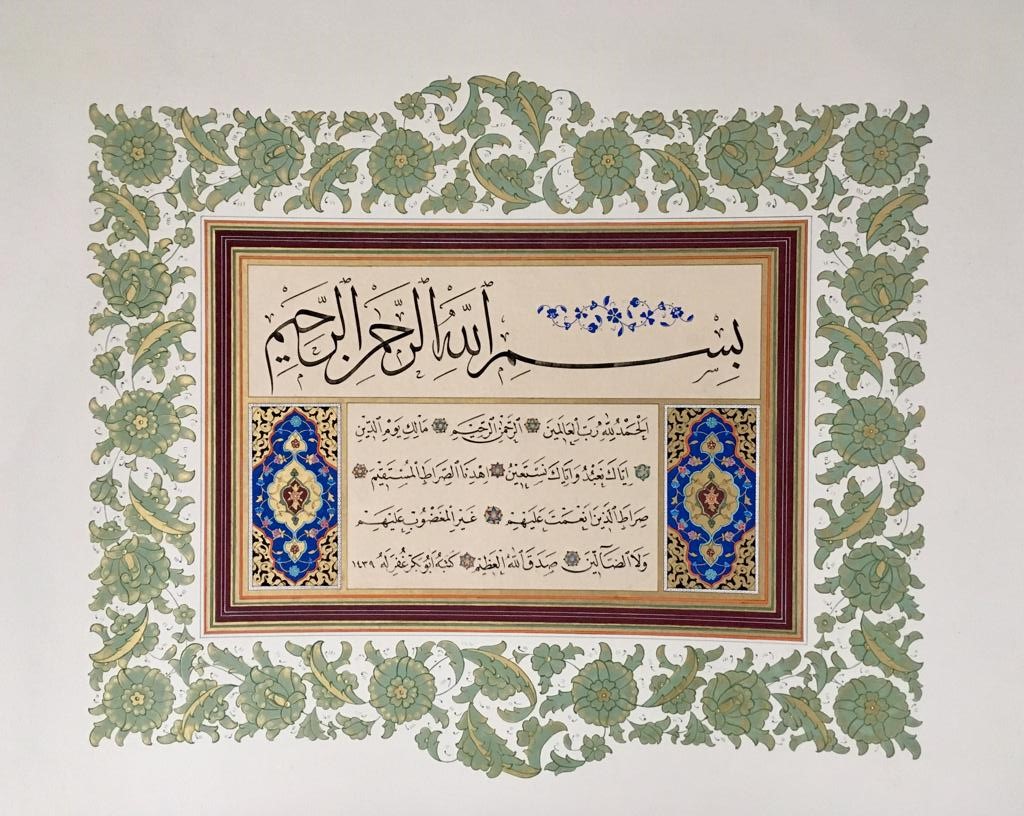 بِسْمِ ٱللَّهِ ٱلرَّحْمَٰنِ ٱلرَّحِيمِ
اَلْحَمْدُ لِلّٰهِ رَبِّ الْعَالَمِينَ اَلرَّحْمٰنِ الرَّحِيمِ مَالِكِ يَوْمِ الدِّينِ
اِيَّاكَ نَعْبُدُ وَاِيَّاكَ نَسْتَعِينُ اِهْدِنَا الصِّرَاطَ الْمُسْتَقِيمَ
صِرَاطَ الَّذِينَ اَنْعَمْتَ عَلَيْهِمْ غَيْرِ الْمَغْضُوبِ عَلَيْهِمْ
وَلَا الضَّالِّينَ صَدَقَ اللّٰهُ الْعَظِيمُ كَتَبَهُ اَبُوبَكْر غُفِرَ لَهُ ١٤٣٩